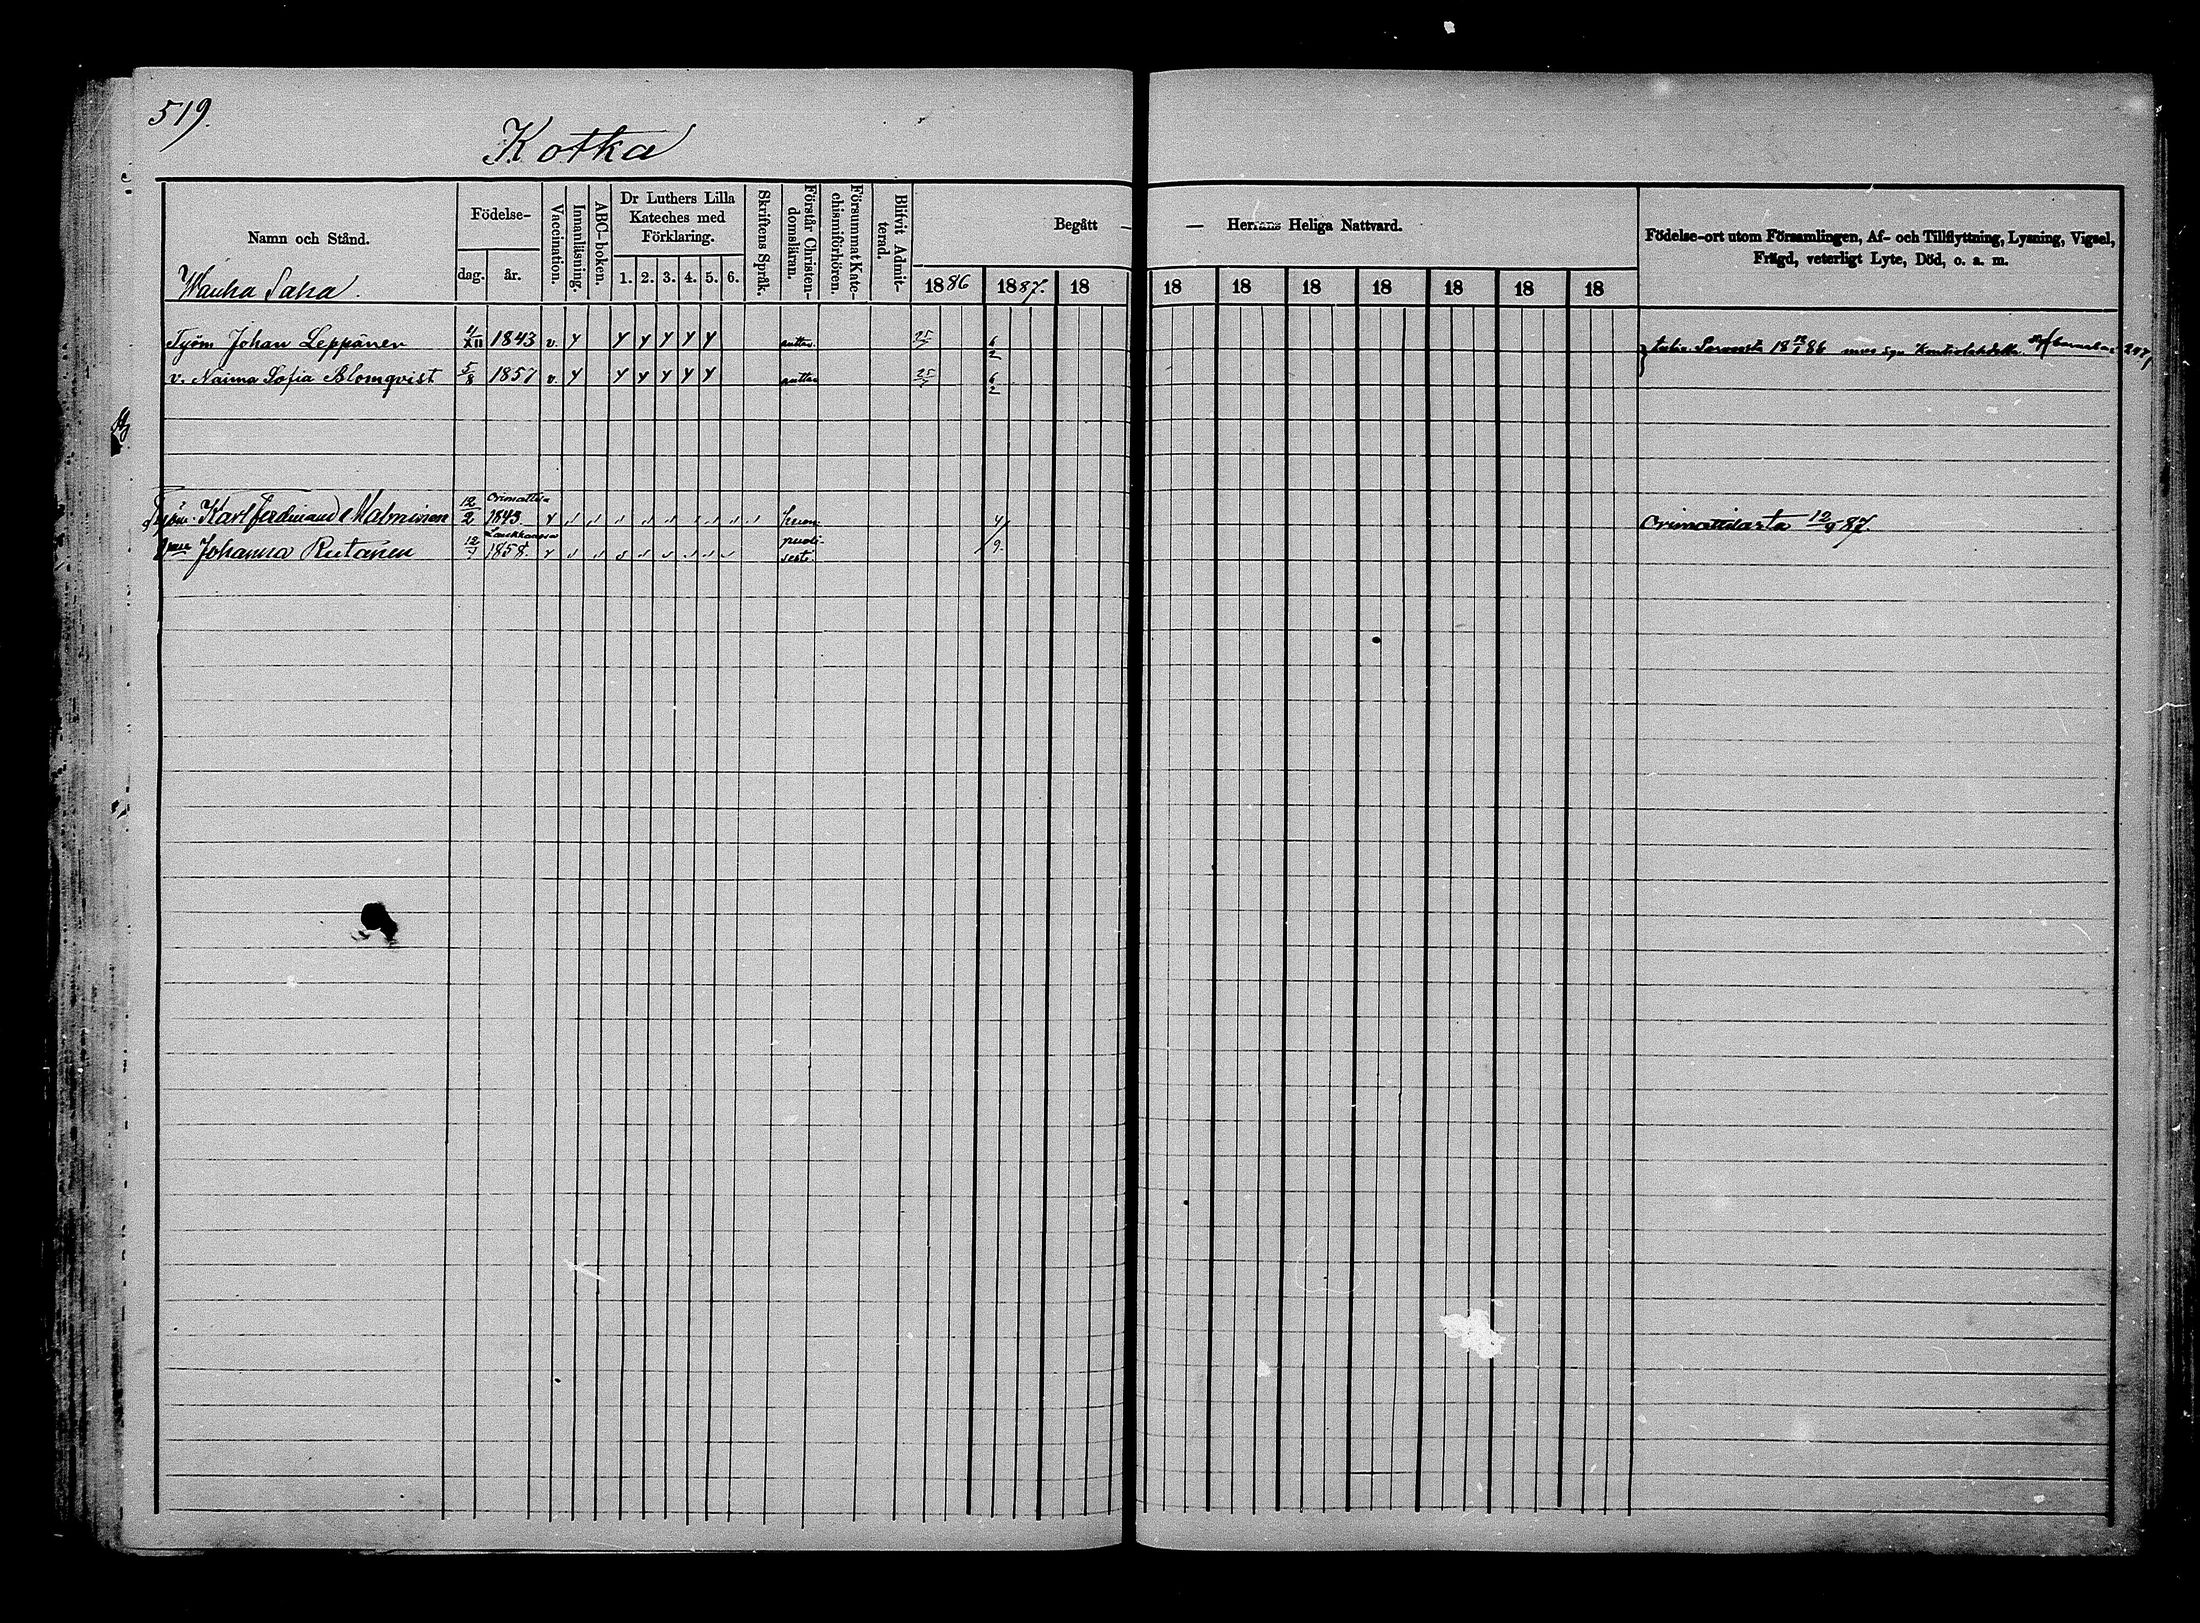 519.
Kotka
Namn och Stånd.
Födelse-
dag. år.
Vaccination.
Innanläsning.
ABC-boken.
Dr Luthers Lilla
Kateches med
Förklaring.
1. 2. 3. 4. 5. 6.
Skriftens Språk.
Förstår Christen-
domsläran.
Försummat Kate-
chismiförhören.
Blifvit Admit-
terad.
Begått — — Herrans Heliga Nattvard.
1886 1887. 18 18 18 18 18 18 18 18
Födelse-ort utom Församlingen, Af- och Tillflyttning, Lysning, Vigsel,
Frägd, veterligt Lyte, Död, o. a. m.
Wanha Saha.
Työm Johan Leppänen 4/XII 1843 v. y y y y y y auttav. 25/7 6/2
v. Naima Sofia Blomqvist 5/8 1857 v. y y y y y y auttav 25/7 6/2
Orimattila
Työm. Karl Ferdinand Malmivuori 12/2 1843. Orimattilasta 87.
Johanna Rutanen 12/7 1858.